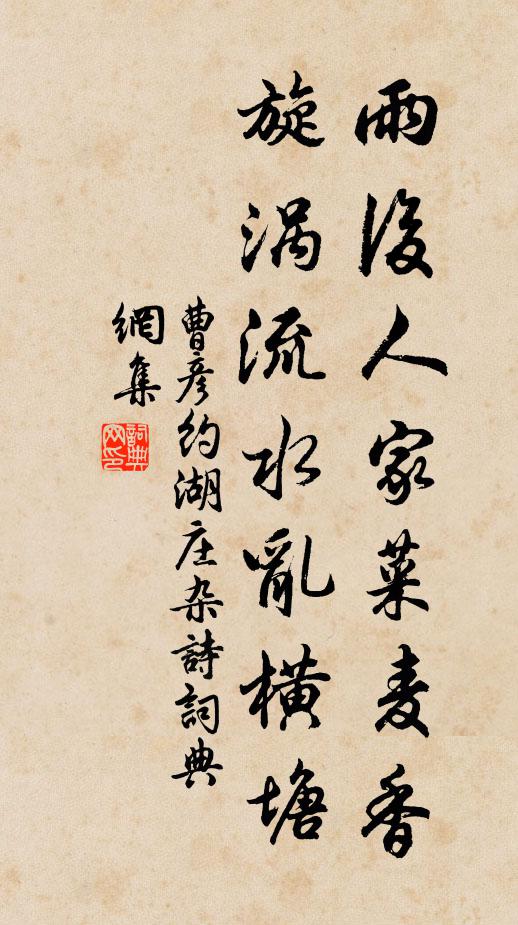 雨後人家菜麦香
旋涡流水亂横塘
曹彦约湖庄杂詩詞典
網集
詞典
网印